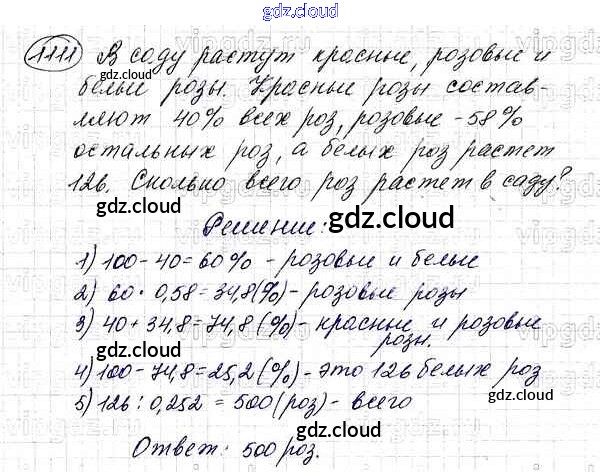 gdz.cloud
1111 В саду растут красные, розовые и
белые розы. Красные розы состав-
ляют 40% всех роз, розовые - 58%
остальных роз, а белых роз растет
126. Сколько всего роз растет в саду?
Решение:
1) 100 - 40 = 60% - розовые и белые
2) 60 · 0,58 = 34,8 (%) - розовые розы
3) 40 + 34,8 = 74,8 (%) - красные и розовые
розы.
4) 100 - 74,8 = 25,2 (%) - это 126 белых роз
5) 126 : 0,252 = 500 (роз) - всего
Ответ: 500 роз.
gdz.cloud
gdz.cloud
gdz.cloud
gdz.cloud
gdz.cloud
gdz.cloud
gdz.cloud
gdz.cloud